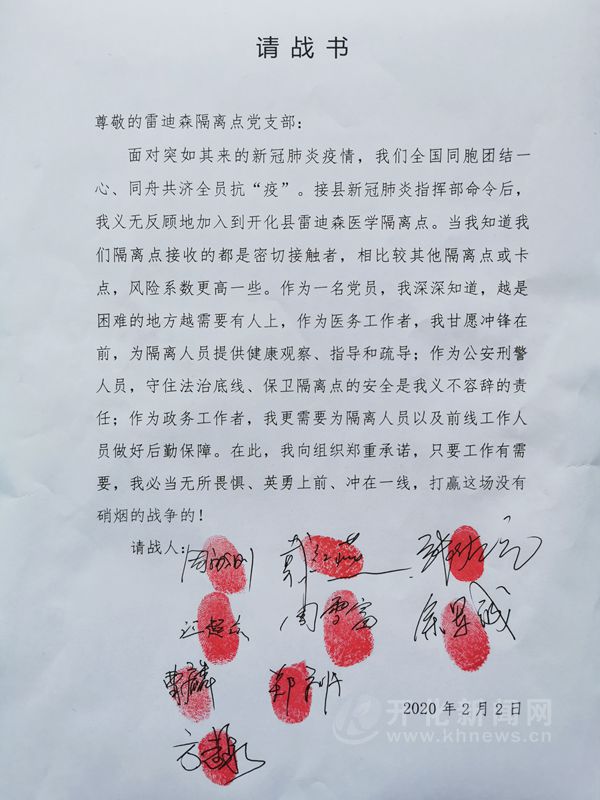 请战书
尊敬的雷迪森隔离点党支部：
面对突如其来的新冠肺炎疫情，我们全国同胞团结一
心、同舟共济全员抗“疫”。接县新冠肺炎指挥部命令后，
我义无反顾地加入到开化县雷迪森医学隔离点。当我知道我
们隔离点接收的都是密切接触者，相比较其他隔离点或卡
点，风险系数更高一些。作为一名党员，我深深知道，越是
困难的地方越需要有人上，作为医务工作者，我甘愿冲锋在
前，为隔离人员提供健康观察、指导和疏导；作为公安刑警
人员，守住法治底线、保卫隔离点的安全是我义不容辞的责
任；作为政务工作者，我更需要为隔离人员以及前线工作人
员做好后勤保障。在此，我向组织郑重承诺，只要工作有需
要，我必当无所畏惧、英勇上前、冲在一线，打赢这场没有
硝烟的战争的！
请战人：
周雪富
2020年2月2日
开化新闻网
www.khnews.cn